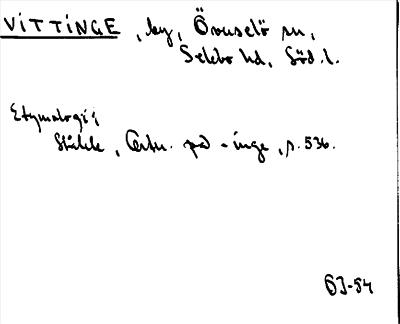 VITTINGE, by, Överselö sn,
Selebo hd, Söd. l.
Etymologi:
Ståhle, Ortn. på -inge, s. 536.
GJ-54